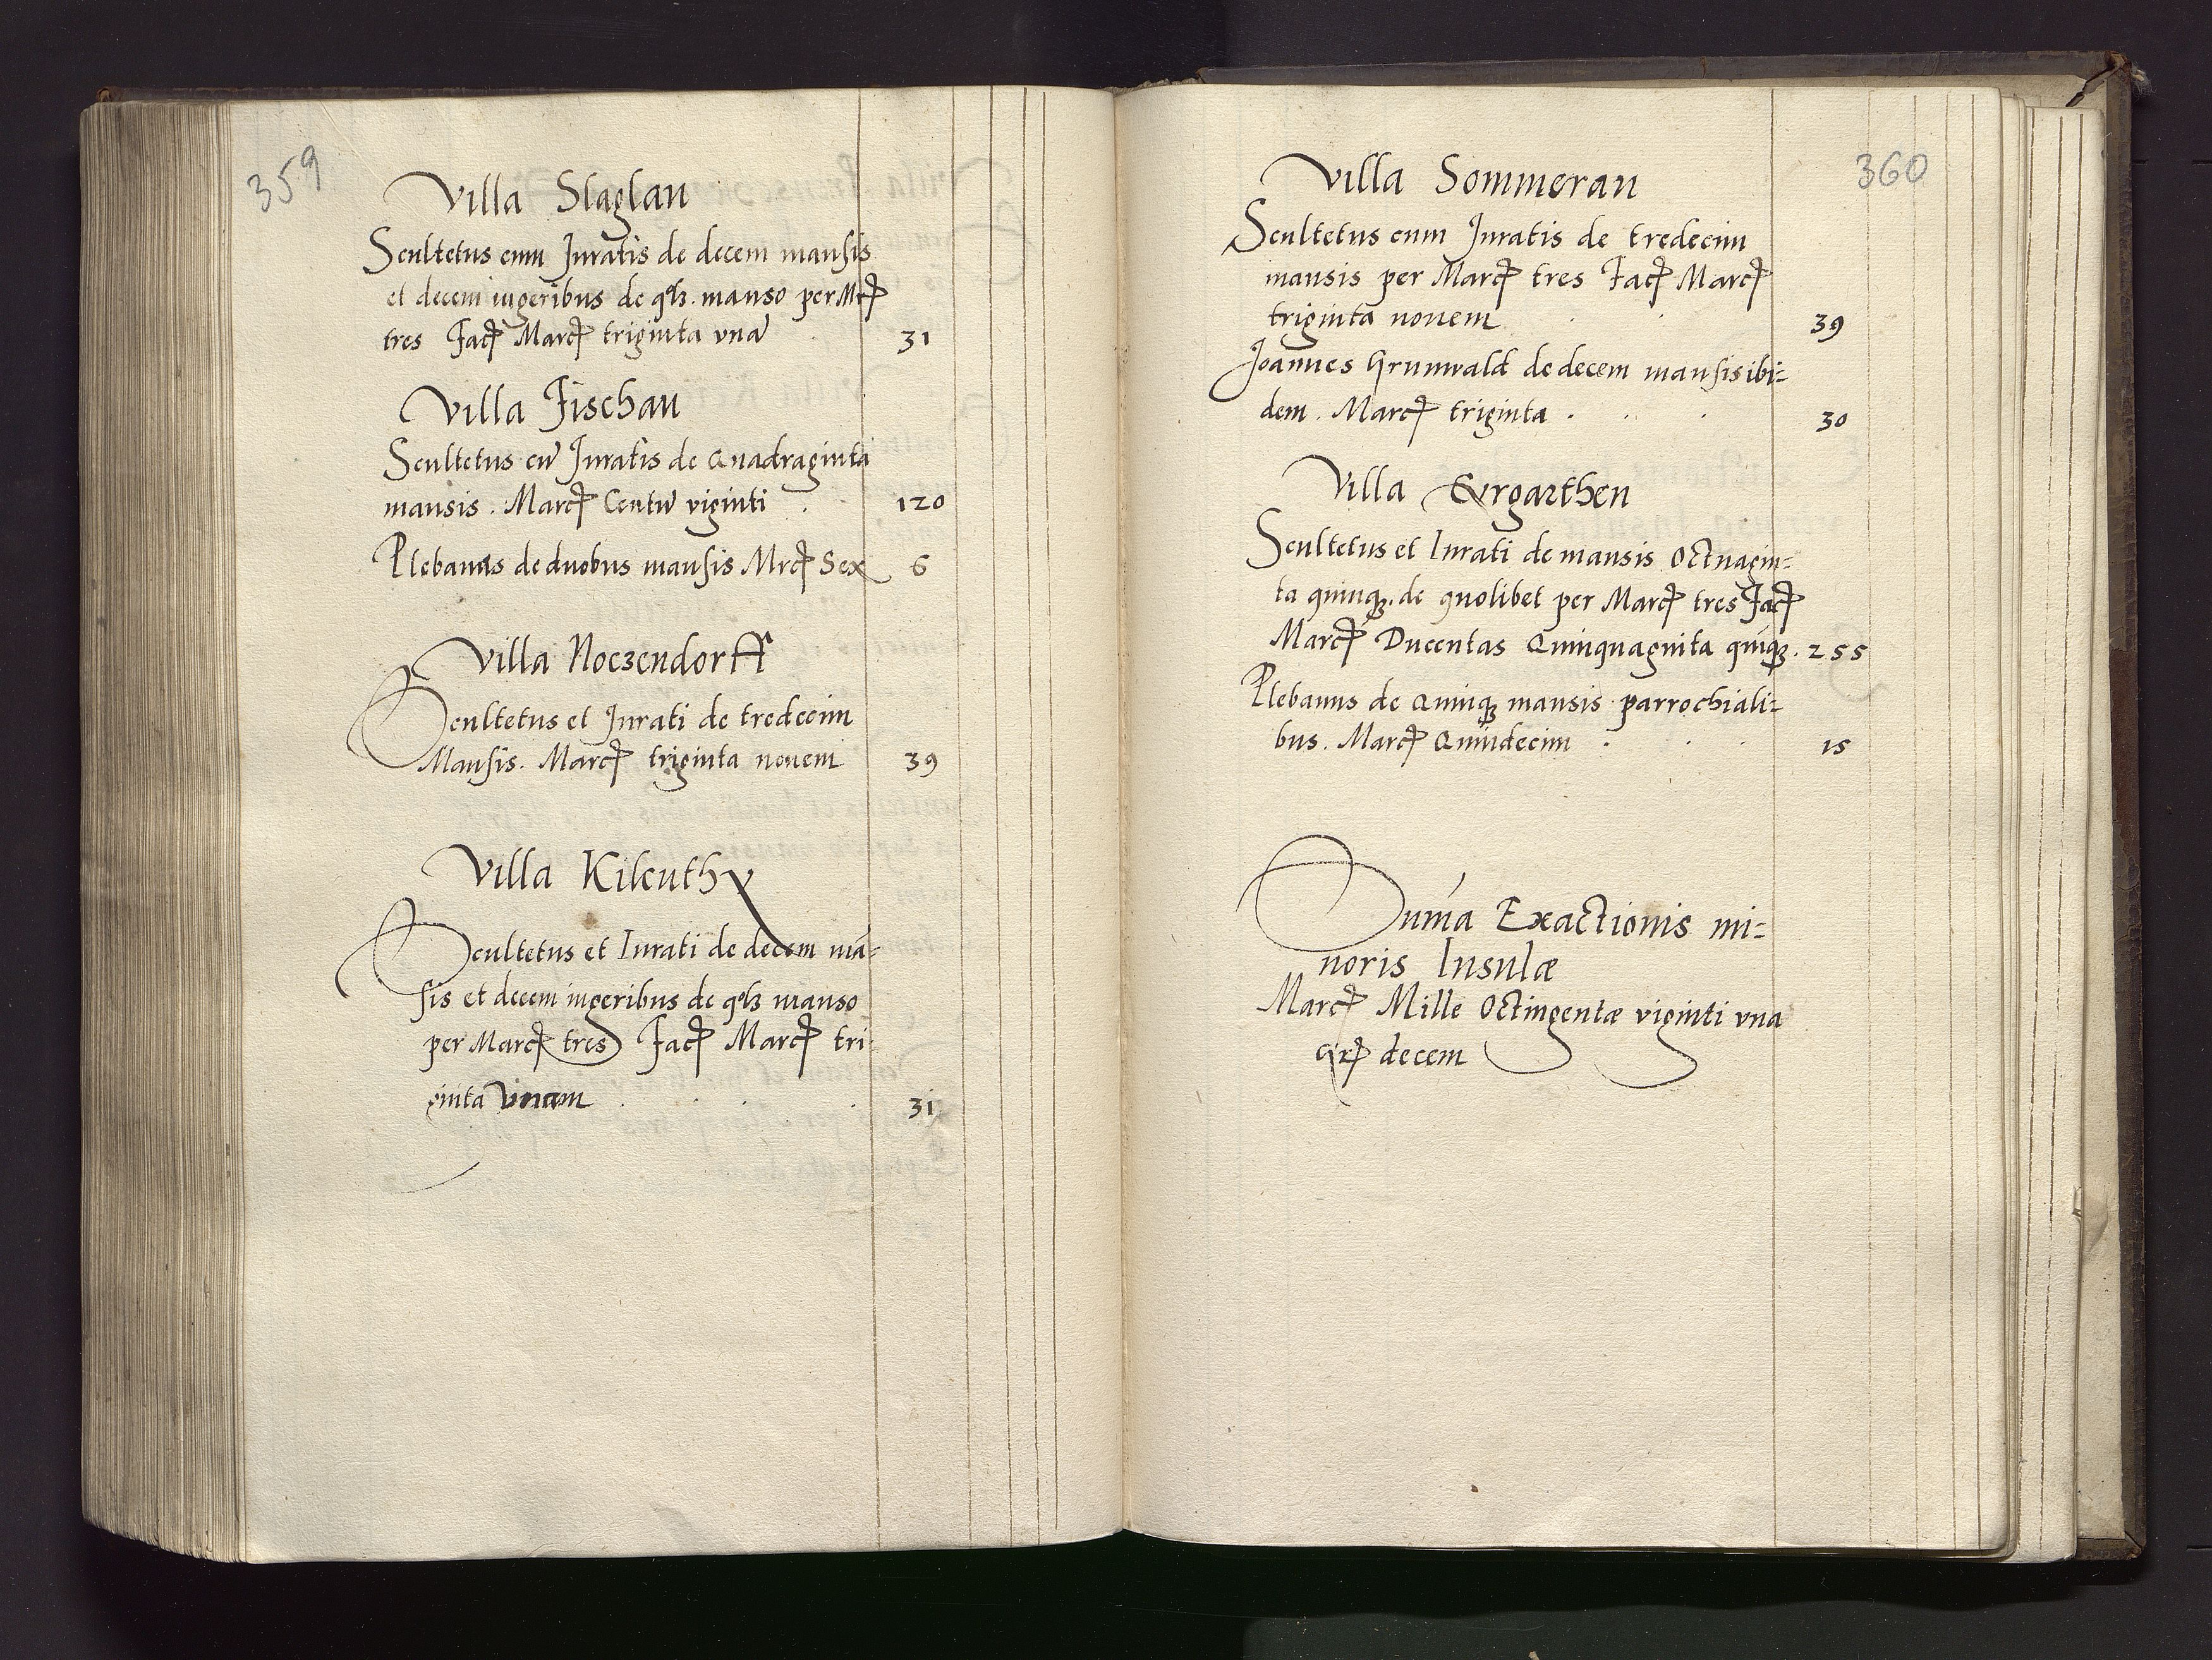 359
Villa Slaglau
Scultetus cum Juratis de decem mansis
et decem iugeribus de qolz. manso per Mrc
tres Fac Marc triginta vnā
31
Villa Fischau
Scultetus cū Juratis de Quadraginta
mansis. Marc Centū viginti .
120
Plebanus de duobus mansis Mrc Sex
6
Villa Noczendorff
Scultetus et Jurati de tredecim
Mansis. Marc triginta nouem
39
Villa Kileuthy
Scultetus et Iurati de decem mā=
sis et decem iugeribus de qolz manso
per Marc tres Fac Marc tri
ginta Vnam . . .
31
360
Villa Sommerau
Scultetus cum Juratis de tredecim
mansis per Marc tres Fac Marc
triginta nouem . .
39
Joannes Grunwald de decem mansis ibi=
dem. Marc triginta . . .
30
Villa Eyrgarthen
Scultetus et Iurati de mansis Octuagin=
ta quinq3. de quolibet per Marc tres Fac
Marc Ducentas Quinquaginta quiq3. 255
Plebanus de Quinq3 mansis parrochiali=
bus. Marc Quindecim . . .
15
Sum̄a Exactionis mi=
noris Insulæ
Marc Mille Octingentæ viginti vna
decem